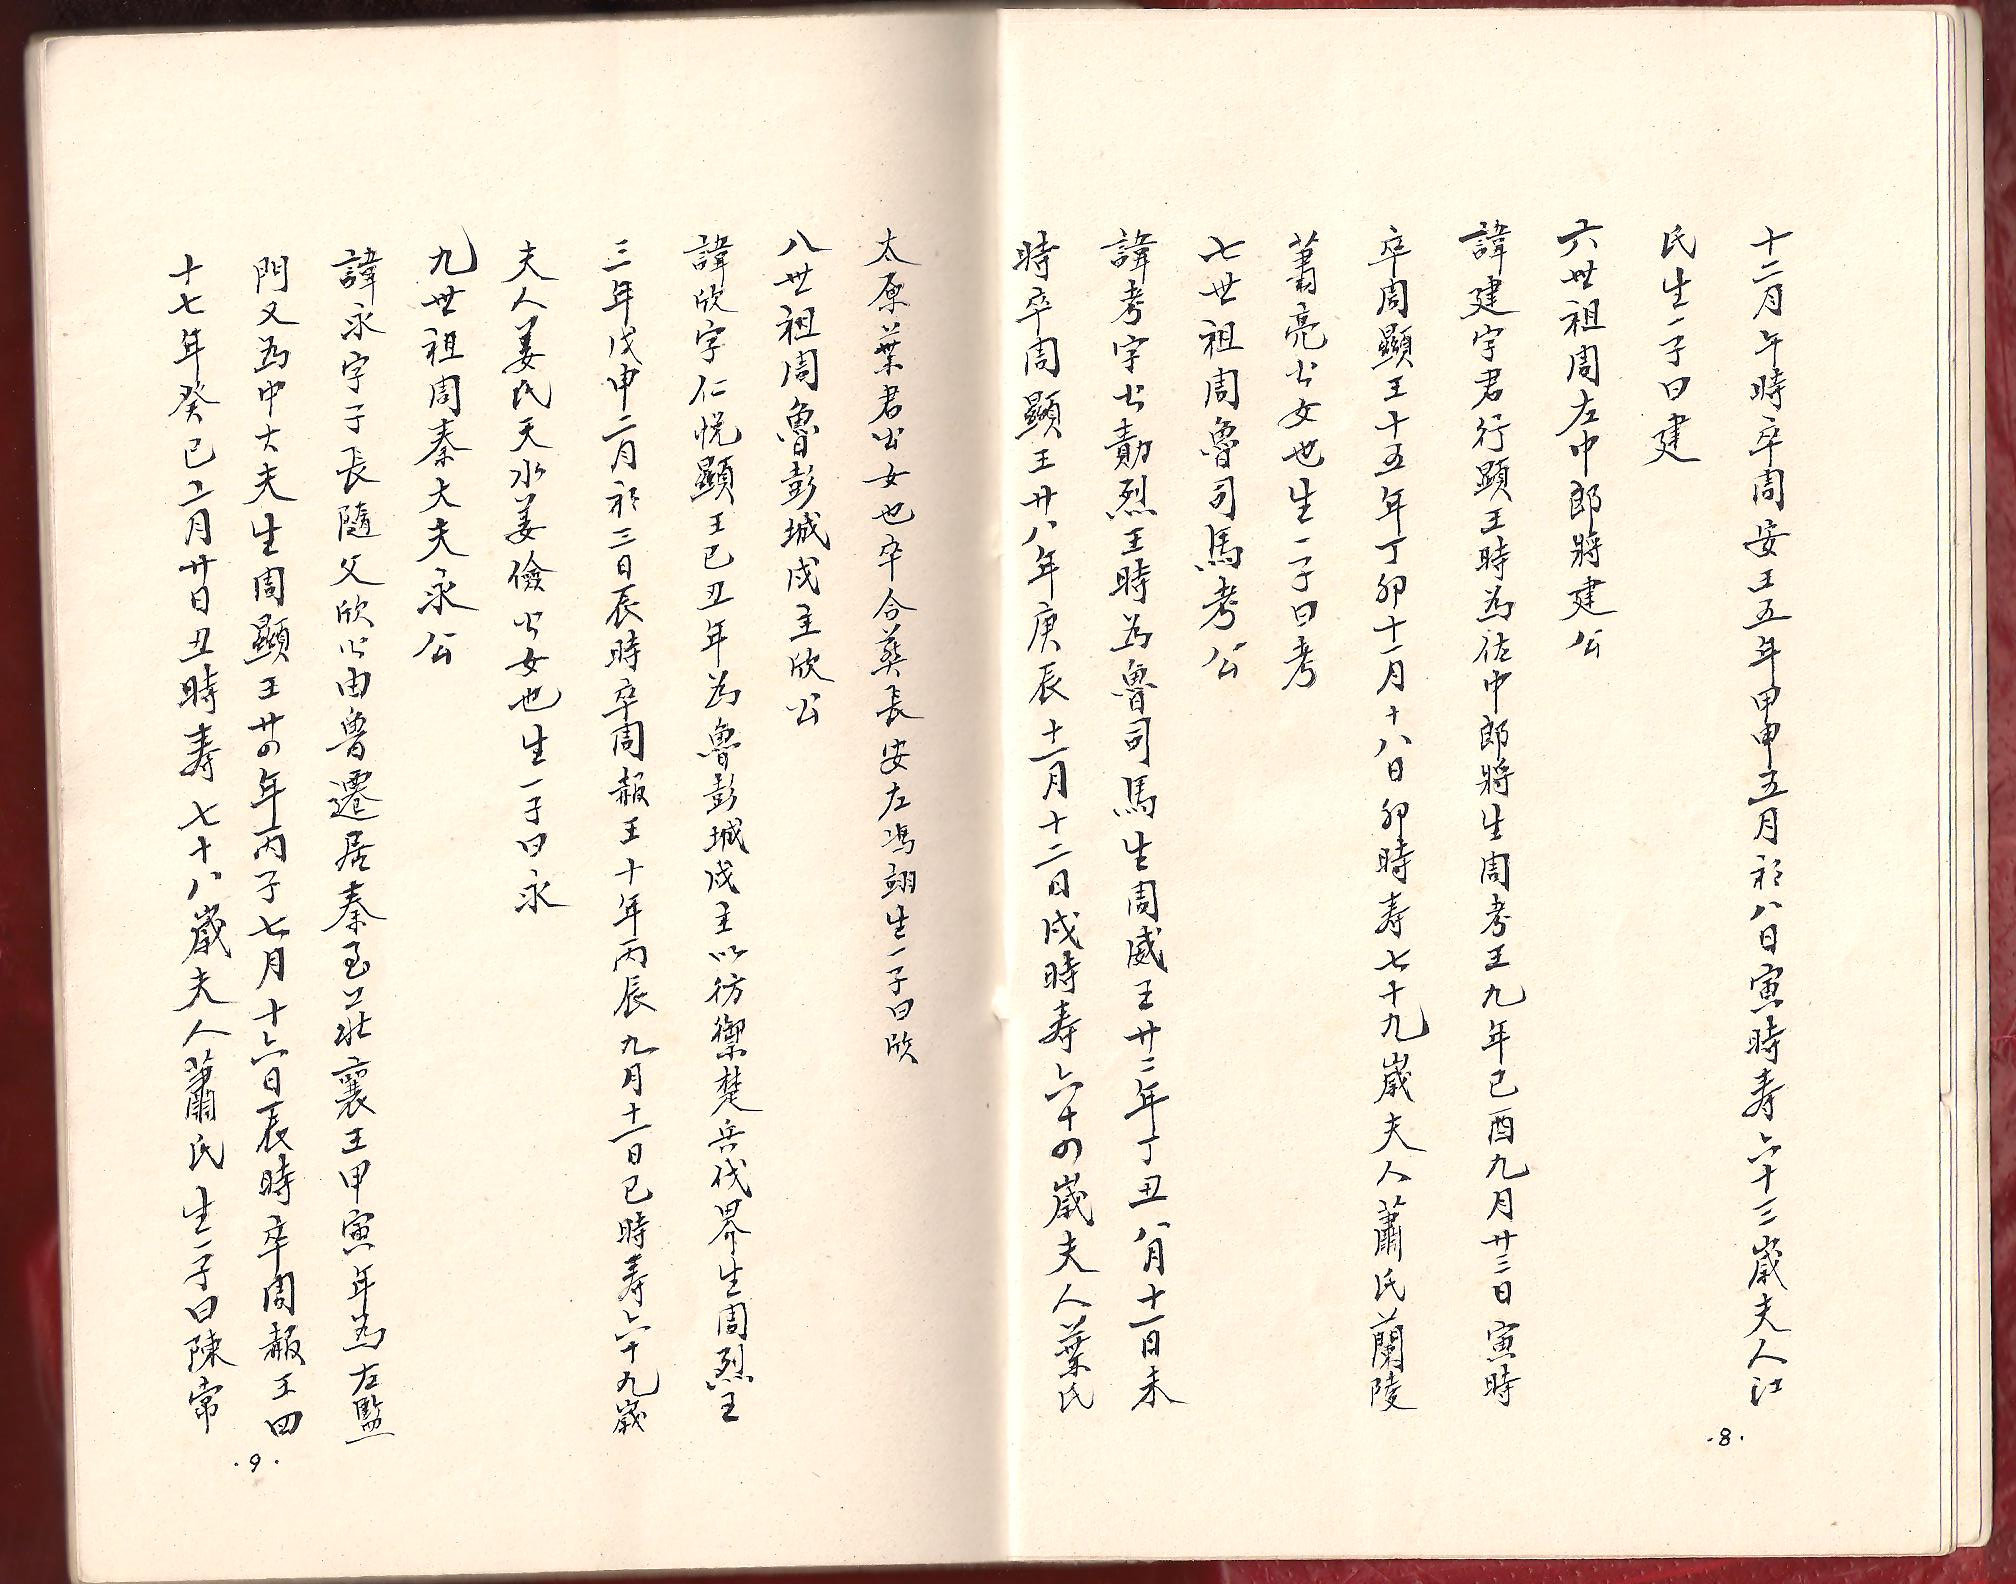 十二月午時卒周安王五年甲申五月初八日寅時寿六十三歲夫人江
氏生一子曰建
六世祖周左中郎將建公
諱建字君行顯王時為佐中郎將生周考王九年己酉九月廿三日寅時
卒周顯王十五年丁卯十一月十八日卯時寿七十九歲夫人蕭氏蘭陵
蕭亮公女也生一子曰考
七世祖周魯司馬考公
諱考字公勣烈王時為魯司馬生周威王廿二年丁丑八月十一日未
時卒周顯王廿八年庚辰十一月十二日戌時寿六十四歲夫人葉氏
·8·
太原葉君公女也卒合葬長安左馮翊生一子曰欣
八世祖周魯彭城戍主欣公
諱欣字仁悅顯王己丑年為魯彭城戍主以彷禦楚兵伐界生周烈王
三年戊申二月初三日辰時卒周赧王十年丙辰九月十一日巳時寿六十九歲
夫人姜氏天水姜儉公女也生一子曰永
九世祖周秦大夫永公
諱永字子長隨父欣公由魯遷居秦至莊襄王甲寅年為左監
門又為中大夫生周顯王廿四年丙子七月十六日辰時卒周赧王四
十七年癸巳二月廿日丑時寿七十八歲夫人蕭氏生一子曰陳常
·9·